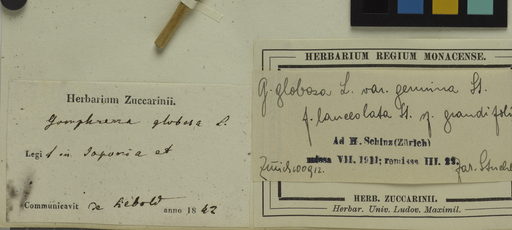 Herbarium Zuccarinii.
Gomphrena globosa L.
Legit in Japonia et
Communicavit de Siebold anno 1842
HERBARIUM REGIUM MONACENSE.
G. globosa L. var. genuina St.
f. lanceolata St. f. grandifoli
Ad H. Schinz (Zürich)
missa VII. 1911; remissa III.
HERB. ZUCCARINII.
Herbar. Univ. Ludov. Maximil.